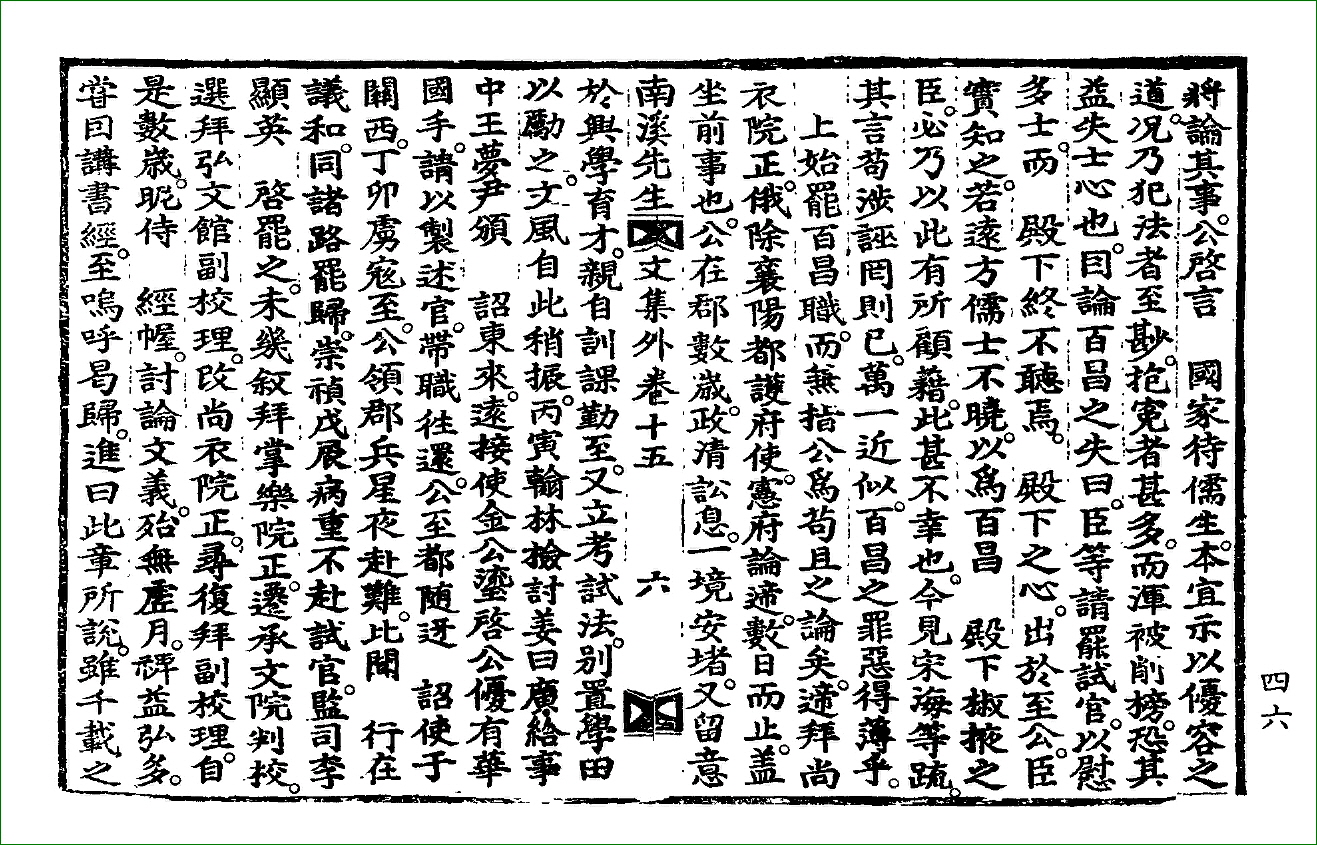 將論其事。公啓言　國家待儒生。本宜示以優容之
道。况乃犯法者至尠。抱寃者甚多。而渾被削榜。恐其
益失士心也。因論百昌之失曰。臣等請罷試官。以慰
多士。而　殿下終不聽焉。　殿下之心。出於至公。臣
實知之。若遠方儒士不曉。以爲百昌　殿下椒掖之
臣。必乃以此有所顧藉。此甚不幸也。今見宋海等疏。
其言苟涉誣罔則已。萬一近似。百昌之罪惡得薄乎。
上始罷百昌職。而無指公爲苟且之論矣。遞拜尚
衣院正。俄除襄陽都護府使。憲府論遞。數日而止。盖
坐前事也。公在郡數歲。政清訟息。一境安堵。又留意
南溪先生文集外卷十五　六
於興學育才。親自訓課勤至。又立考試法。別置學田
以勵之。文風自此稍振。丙寅翰林檢討姜曰廣給事
中王夢尹頒　詔東來。遠接使金公瑬啓公優有華
國手。請以製述官。帶職往還。公至都随迓　詔使于
關西。丁卯虜寇至。公領郡兵星夜赴難。比聞　行在
議和。同諸路罷歸。崇禎戊辰病重不赴試官。監司李
顯英　啓罷之。未幾叙拜掌樂院正。遷承文院判校。
選拜弘文館副校理。改尚衣院正。尋復拜副校理。自
是數歲。昵侍　經幄。討論文義。殆無虛月。裨益弘多。
甞因講書經。至嗚呼曷歸。進曰此章所說。雖千載之
四六